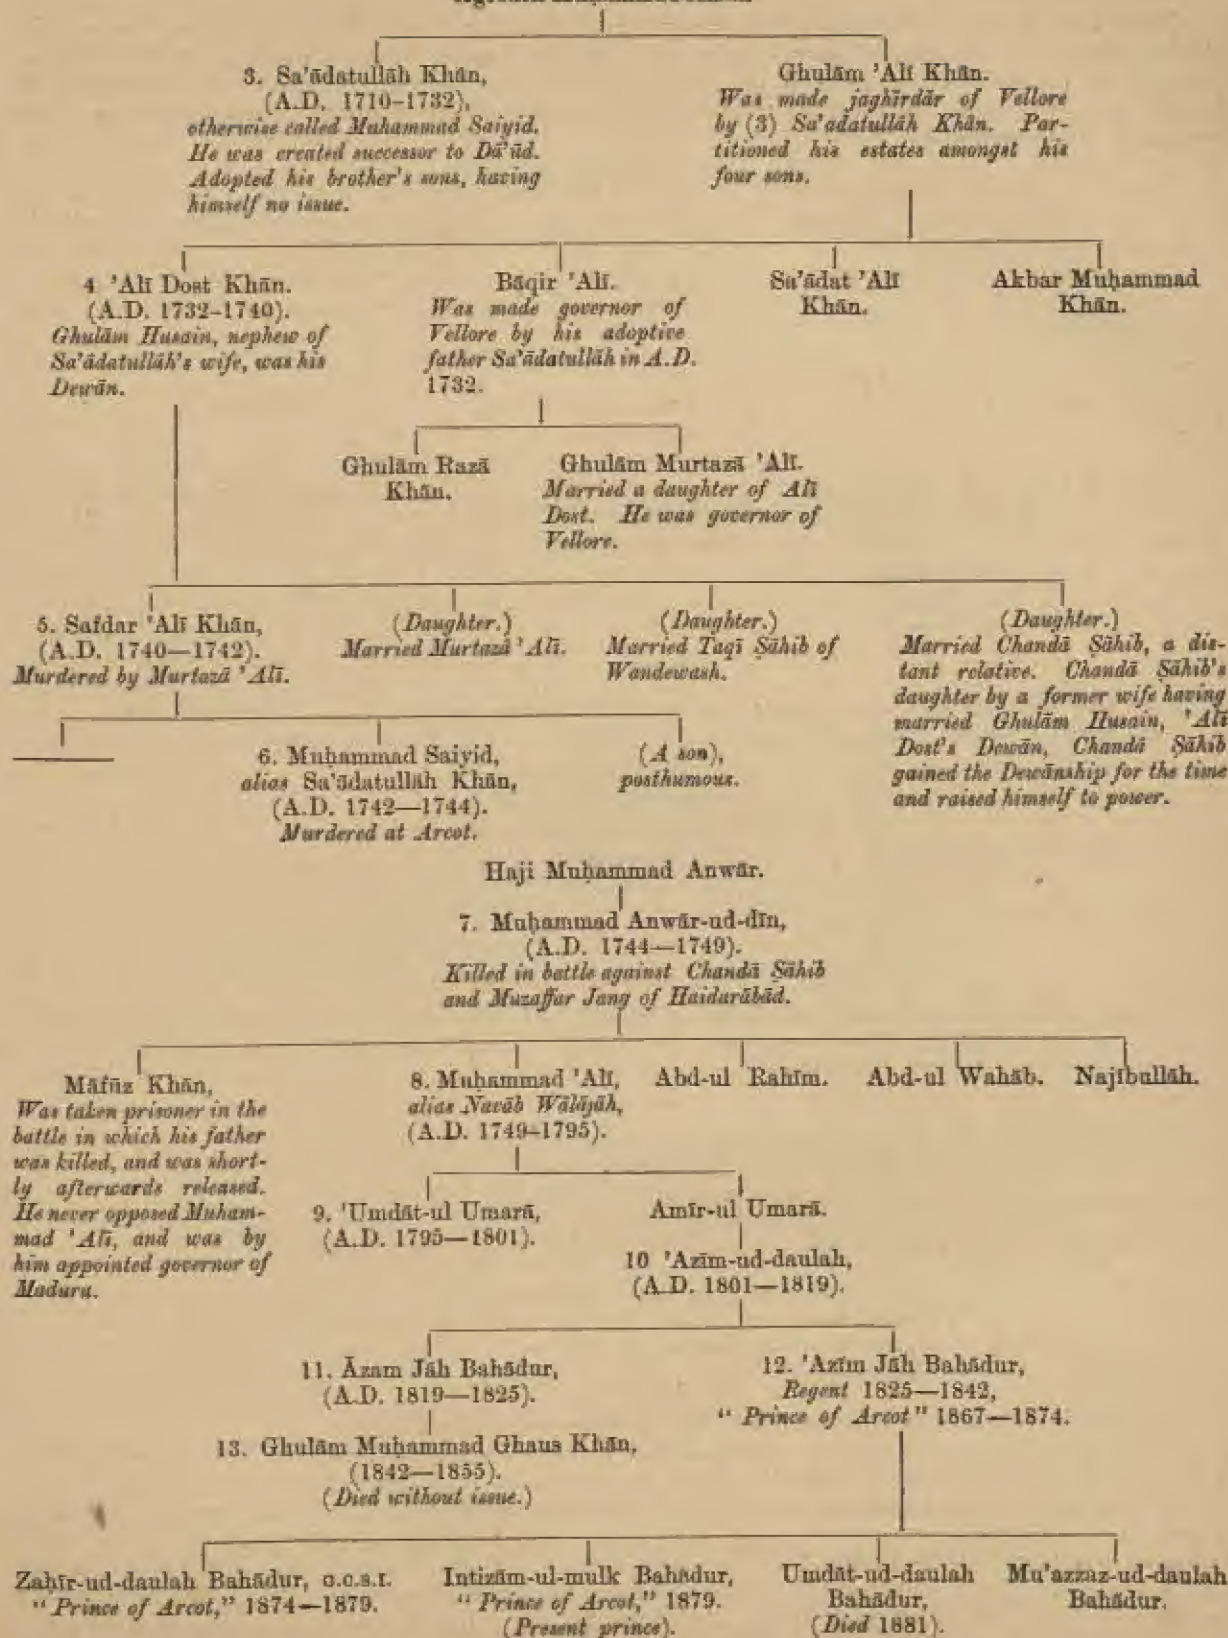 3. Sa'ādatullāh Khān,
(A.D. 1710–1732),
otherwise called Muhammad Saiyid.
He was created successor to Dā'ūd.
Adopted his brother's sons, having
himself no issue.
Ghulām 'Alī Khān.
Was made jaghīrdār of Vellore
by (3) Sa'adatullāh Khān. Par-
titioned his estates amongst his
four sons.
4 'Alī Dost Khān.
(A.D. 1732–1740).
Ghulām Husain, nephew of
Sa'ādatullāh's wife, was his
Dewān.
Bāqir 'Alī.
Was made governor of
Vellore by his adoptive
father Sa'ādatullāh in A.D.
1732.
Sa'ādat 'Alī
Khān.
Akbar Muḥammad
Khān.
Ghulām Razā
Khān.
Ghulām Murtazā 'Alī.
Married a daughter of Alī
Dost. He was governor of
Vellore.
5. Safdar 'Alī Khān,
(A.D. 1740—1742).
Murdered by Murtazā 'Alī.
(Daughter.)
Married Murtazā 'Alī.
(Daughter.)
Married Taqī Ṣāhib of
Wandewash.
(Daughter.)
Married Chandā Ṣāhib, a dis-
tant relative. Chandā Ṣāhib's
daughter by a former wife having
married Ghulām Husain, 'Alī
Dost's Dewān, Chandā Ṣāhib
gained the Dewānship for the time
and raised himself to power.
6. Muḥammad Saiyid,
alias Sa'ādatullāh Khān,
(A.D. 1742—1744).
Murdered at Arcot.
(A son),
posthumous.
Haji Muḥammad Anwār.
7. Muḥammad Anwār-ud-dīn,
(A.D. 1744—1749).
Killed in battle against Chandā Ṣāhib
and Muzaffar Jang of Haidarābād.
Māfūz Khān,
Was taken prisoner in the
battle in which his father
was killed, and was short-
ly afterwards released.
He never opposed Muham-
mad 'Alī, and was by
him appointed governor of
Madura.
8. Muḥammad 'Alī,
alias Navāb Wālājāh,
(A.D. 1749–1795).
Abd-ul Rahīm.
Abd-ul Wahāb.
Najībullāh.
9. 'Umdāt-ul Umarā,
(A.D. 1795—1801).
Amīr-ul Umarā.
10 'Azīm-ud-daulah,
(A.D. 1801—1819).
11. Āzam Jāh Bahādur,
(A.D. 1819—1825).
12. 'Azīm Jāh Bahādur,
Regent 1825—1842,
"Prince of Arcot" 1867—1874.
13. Ghulām Muḥammad Ghaus Khān,
(1842—1855).
(Died without issue.)
Zaḥīr-ud-daulah Bahādur, G.C.S.I.
"Prince of Arcot," 1874—1879.
Intizām-ul-mulk Bahādur,
"Prince of Arcot," 1879.
(Present prince).
Umdāt-ud-daulah
Bahādur,
(Died 1881).
Mu'azzaz-ud-daulah
Bahādur.